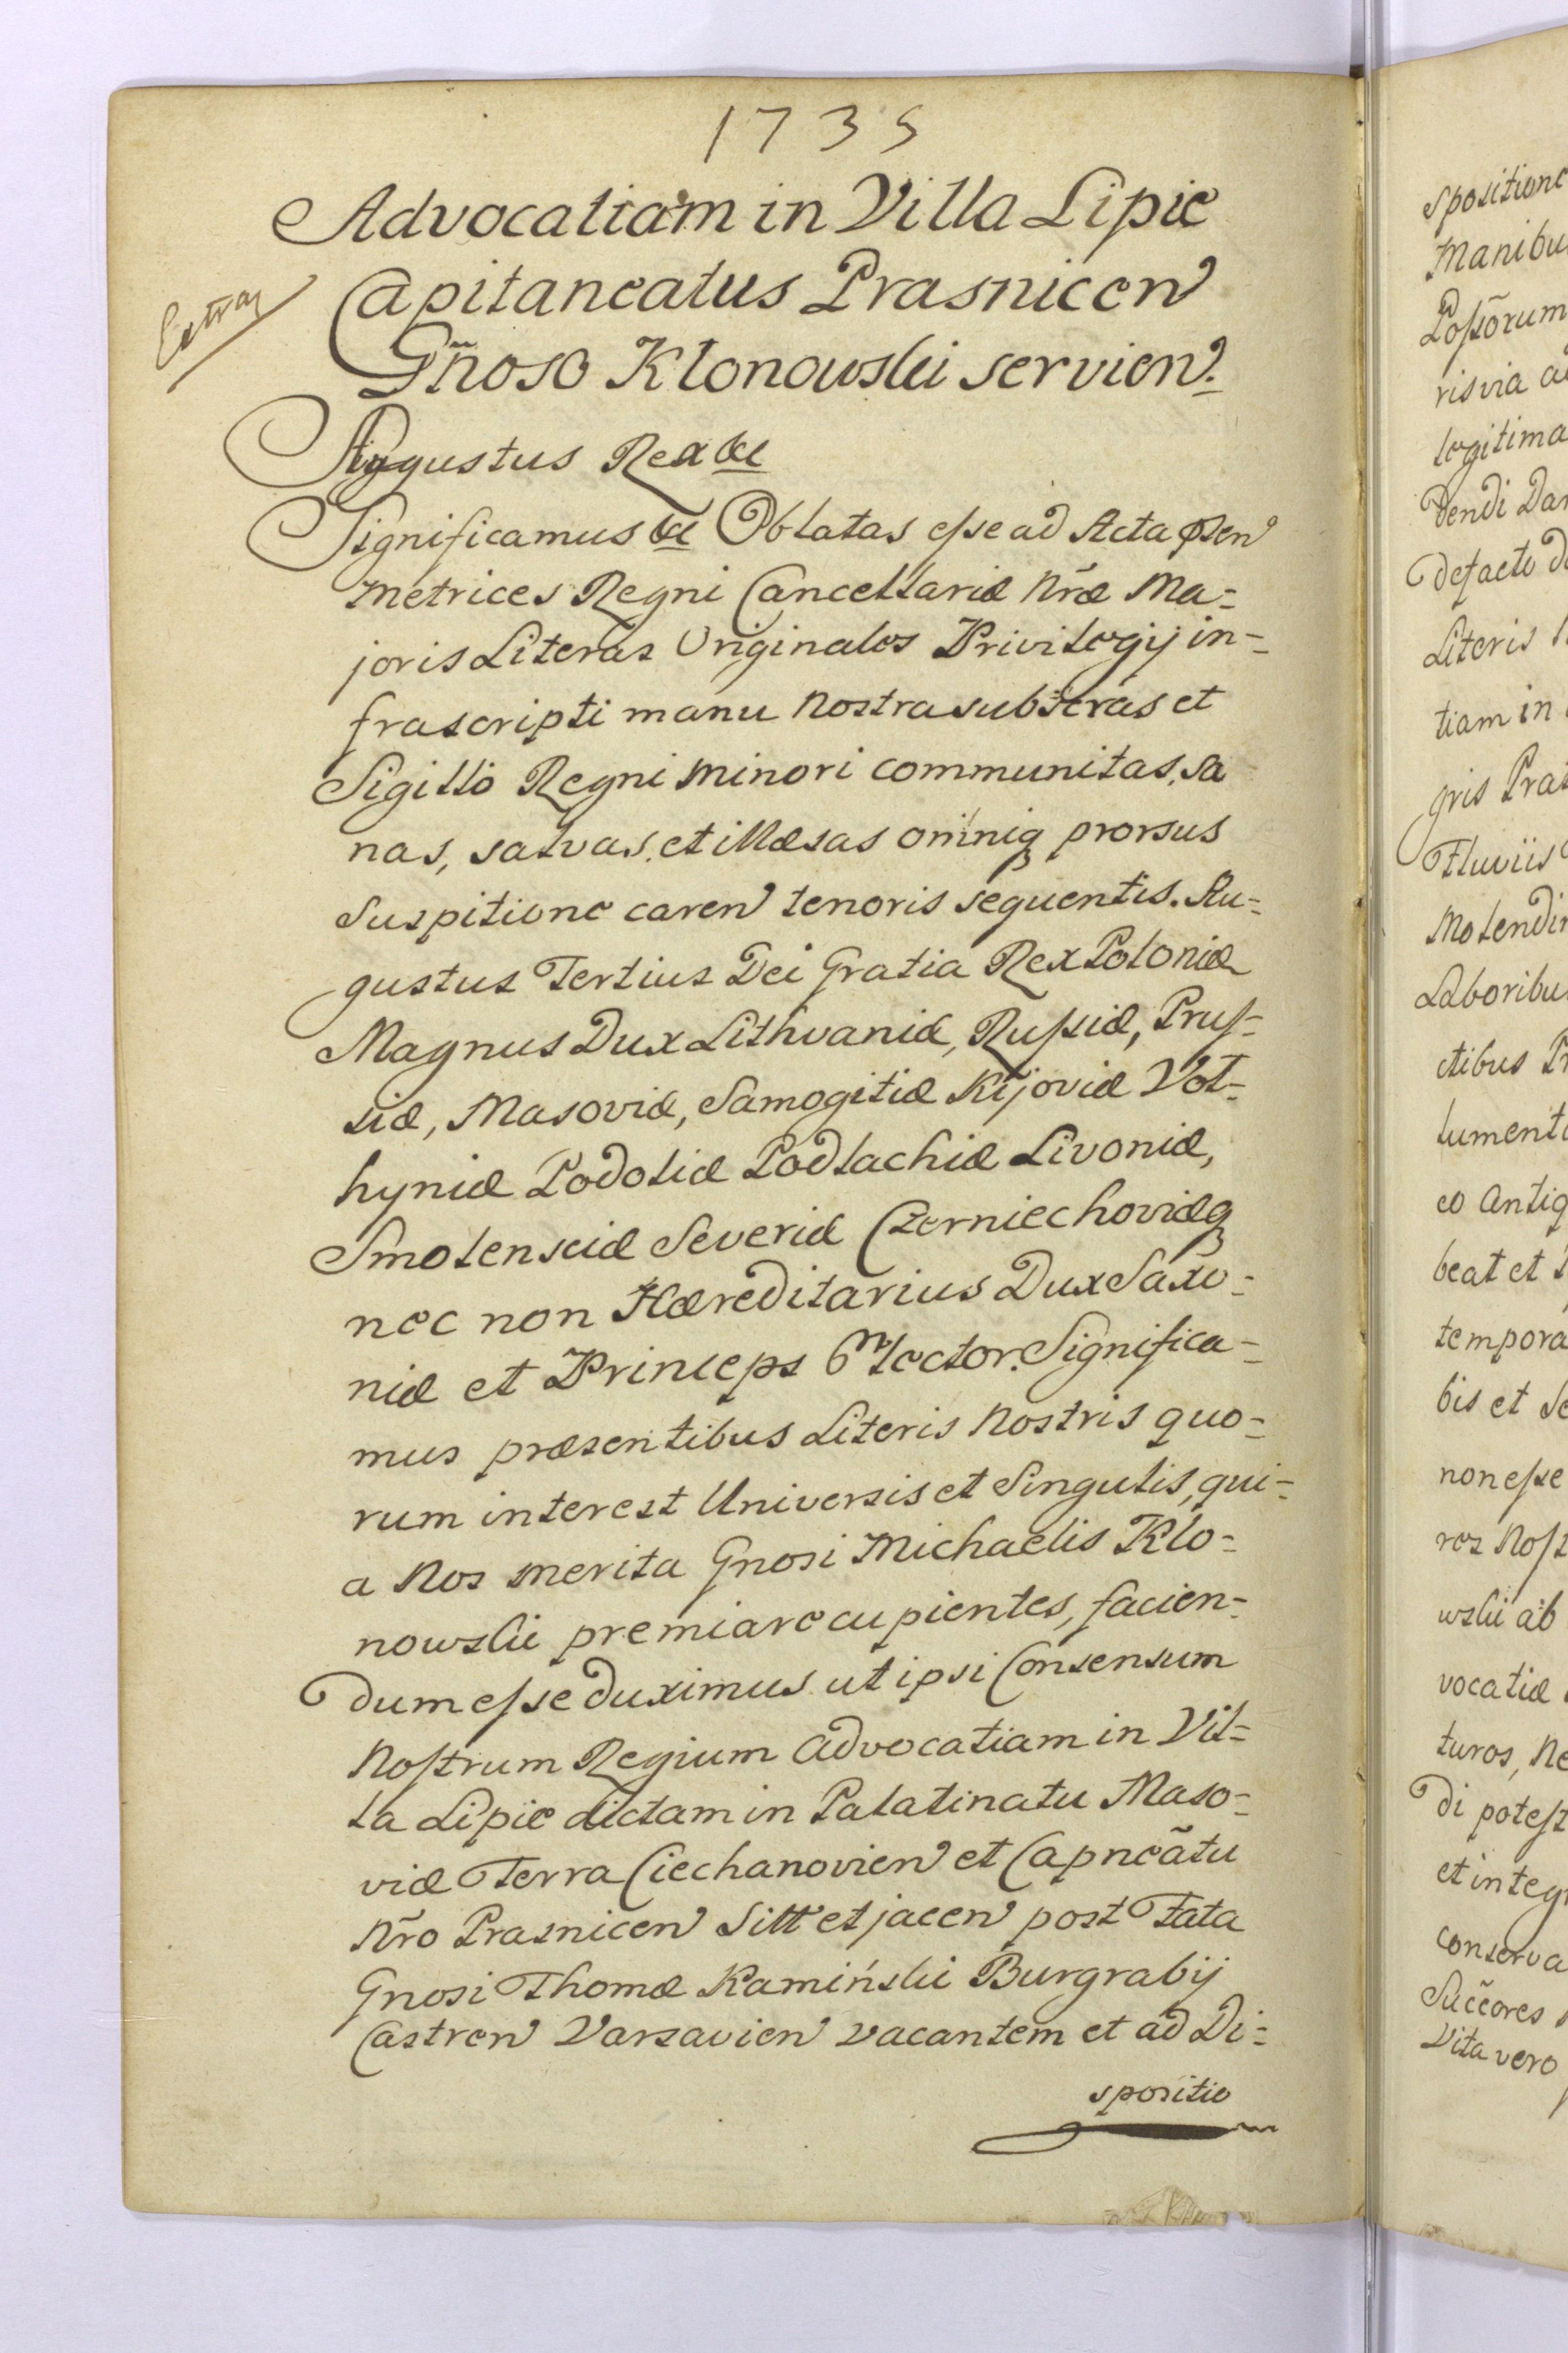 1735
Advocatiam in Villa Lipie
Capitaneatus Prasnicen
Gñoso Klonowski servien.
Extrax
Augustus Rex &c
Significamus &c Oblatas eſse ad Acta pſsen
Metrices Regni Cancellariæ Nr̃æ Ma=
joris Literas Originales Privilegij in=
frascripti manu Nostra subscras et
Sigillo Regni Minori communitas, sa
nas, salvas, et illæsas omniq prorsus
Suspitione caren tenoris sequentis. Au=
gustus Tertius Dei Gratia Rex Poloniæ
Magnus Dux Lithvaniæ, Ruſsiæ, Pruſ=
siæ, Masoviæ, Samogitiæ Kijoviæ Vol=
hyniæ Podoliæ Podlachiæ Livoniæ,
Smolensciæ Severiæ Czerniechoviæq
nec non Hæreditarius Dux Saxo=
niæ et Princeps Elector. Significa=
mus præsentibus Literis Nostris quo=
rum interest Universis et Singulis, qui=
a Nos merita Gnosi Michaelis Klo=
nowski premiare cupientes, facien=
dum eſse duximus ut ipsi Consensum
Noſtrum Regium Advocatiam in Vil=
la Lipie dictam in Palatinatu Maso=
viæ Terra Ciechanovien et Capneãtu
Nr̃o Prasnicen Sitt et jacen post Fata
Gnosi Thomæ Kamiński Burgrabij
Castren Varsavien vacantem et ad Di=
spositio
spositione
Manibu
Poſsõrum
ris via
legitima
dendi Dan
defacto
Literis
tiam in
gris Pra
Fluviis
Molendin
Laboribu
ctibus
lument
eo Antiq
beat et
tempora
bis et
non eſse
res Noſt
wski ab
vocatiæ
turos,
di poteſt
et integ
conserva
Suc̃cores
Vita vero